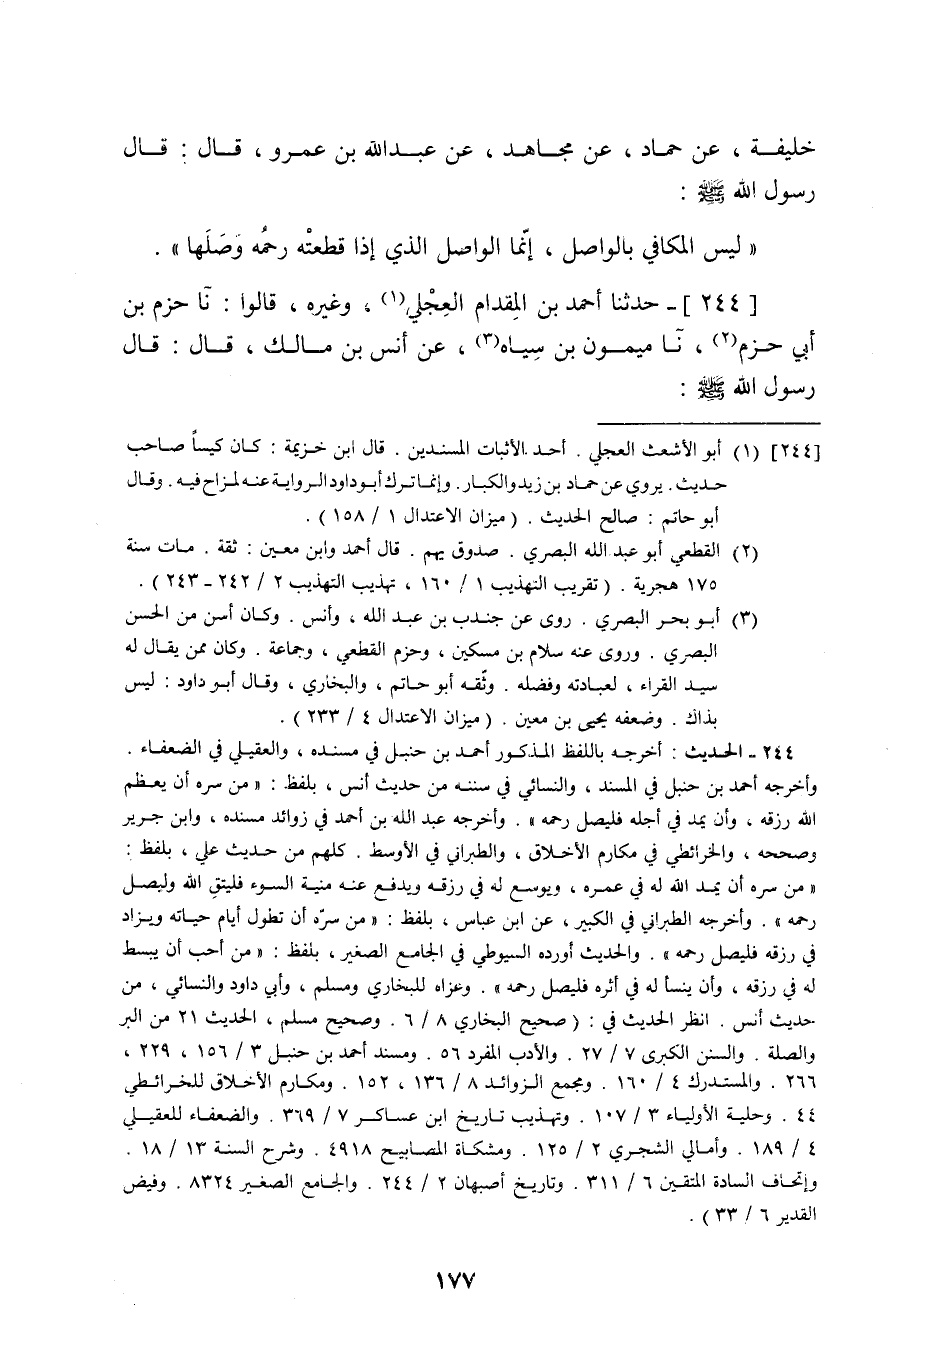 خليفة ، عن حماد ، عن مجاهد ، عن عبدالله بن عمرو ، قال : قال
رسول الله ﷺ :
« ليس المكافي بالواصل ، إنّما الواصل الذي إذا قطعتْه رحمُه وَصَلَها » .
[ ٢٤٤ ] ـ حدثنا أحمد بن المِقدام العِجْلي(١) ، وغيره ، قالوا : نَا حزم بن
أبي حزم(٢) ، نَا ميمون بن سِياه(٣) ، عن أنس بن مالك ، قال : قال
رسول الله ﷺ :
[٢٤٤] (١) أبو الأشعث العجلي . أحد الأثبات المسندين . قال ابن خزيمة : كان كيساً صاحب
حديث . يروي عن حماد بن زيد والكبار . وإنما ترك أبو داود الرواية عنه لمزاح فيه . وقال
أبو حاتم : صالح الحديث . ( ميزان الاعتدال ١ / ١٥٨ ) .
(٢) القطعي أبو عبد الله البصري . صدوق يهم . قال أحمد وابن معين : ثقة . مات سنة
١٧٥ هجرية . ( تقريب التهذيب ١ / ١٦٠ ، تهذيب التهذيب ٢ / ٢٤٢ - ٢٤٣ ) .
(٣) أبو بحر البصري . روى عن جندب بن عبد الله ، وأنس . وكان أسن من الحسن
البصري . وروى عنه سلام بن مسكين ، وحزم القطعي ، وجماعة . وكان ممن يقال له
سيد القراء ، لعبادته وفضله . وثّقه أبو حاتم ، والبخاري ، وقال أبو داود : ليس
بذاك . وضعفه يحيى بن معين . ( ميزان الاعتدال ٤ / ٢٣٣ ) .
٢٤٤ ـ الحديث : أخرجه باللفظ المذكور أحمد بن حنبل في مسنده ، والعقيلي في الضعفاء .
وأخرجه أحمد بن حنبل في المسند ، والنسائي في سننه من حديث أنس ، بلفظ : « من سره أن يعظم
الله رزقه ، وأن يمد في أجله فليصل رحمه » . وأخرجه عبد الله بن أحمد في زوائد مسنده ، وابن جرير
وصححه ، والخرائطي في مكارم الأخلاق ، والطبراني في الأوسط . كلهم من حديث علي ، بلفظ :
« من سره أن يمد الله له في عمره ، ويوسع له في رزقه ويدفع عنه منية السوء فليتق الله وليصل
رحمه » . وأخرجه الطبراني في الكبير ، عن ابن عباس ، بلفظ : « من سرّه أن تطول أيام حياته ويزاد
في رزقه فليصل رحمه » . والحديث أورده السيوطي في الجامع الصغير ، بلفظ : « من أحب أن يبسط
له في رزقه ، وأن ينسأ له في أثره فليصل رحمه » . وعزاه للبخاري ومسلم ، وأبي داود والنسائي ، من
حديث أنس . انظر الحديث في : ( صحيح البخاري ٨ / ٦ . وصحيح مسلم ، الحديث ٢١ من البر
والصلة . والسنن الكبرى ٧ / ٢٧ . والأدب المفرد ٥٦ . ومسند أحمد بن حنبل ٣ / ١٥٦ ، ٢٢٩ ،
٢٦٦ . والمستدرك ٤ / ١٦٠ . ومجمع الزوائد ٨ / ١٣٦ ، ١٥٢ . ومكارم الأخلاق للخرائطي
٤٤ . وحلية الأولياء ٣ / ١٠٧ . وتهذيب تاريخ ابن عساكر ٧ / ٣٦٩ . والضعفاء للعقيلي
٤ / ١٨٩ . وأمالي الشجري ٢ / ١٢٥ . ومشكاة المصابيح ٤٩١٨ . وشرح السنة ١٣ / ١٨ .
وإتحاف السادة المتقين ٦ / ٣١١ . وتاريخ أصبهان ٢ / ٢٤٤ . والجامع الصغير ٨٣٢٤ . وفيض
القدير ٦ / ٣٣ ) .
١٧٧